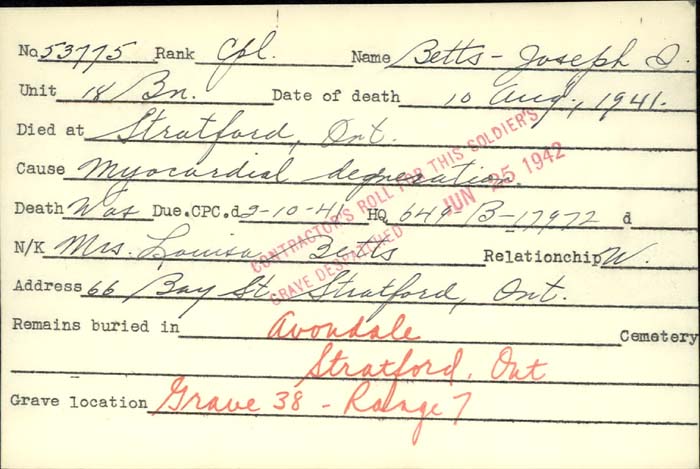 No 53775 Rank Cpl. Name Betts - Joseph D.
Unit 18 Bn. Date of death 10 Aug., 1941.
Died at Stratford, Ont.
Cause Myocardial degeneration.
Death Was Due.CPC.d 2-10-41 HQ 649-B-17972 d
N/K Mrs. Louisa Betts Relationship W.
Address 66 Bay St. Stratford, Ont.
Remains buried in Avondale Cemetery
Stratford, Ont
Grave location Grave 38 - Range 7
CONTRACTOR'S ROLL FOR THIS SOLDIER'S
GRAVE DESPATCHED JUN 25 1942